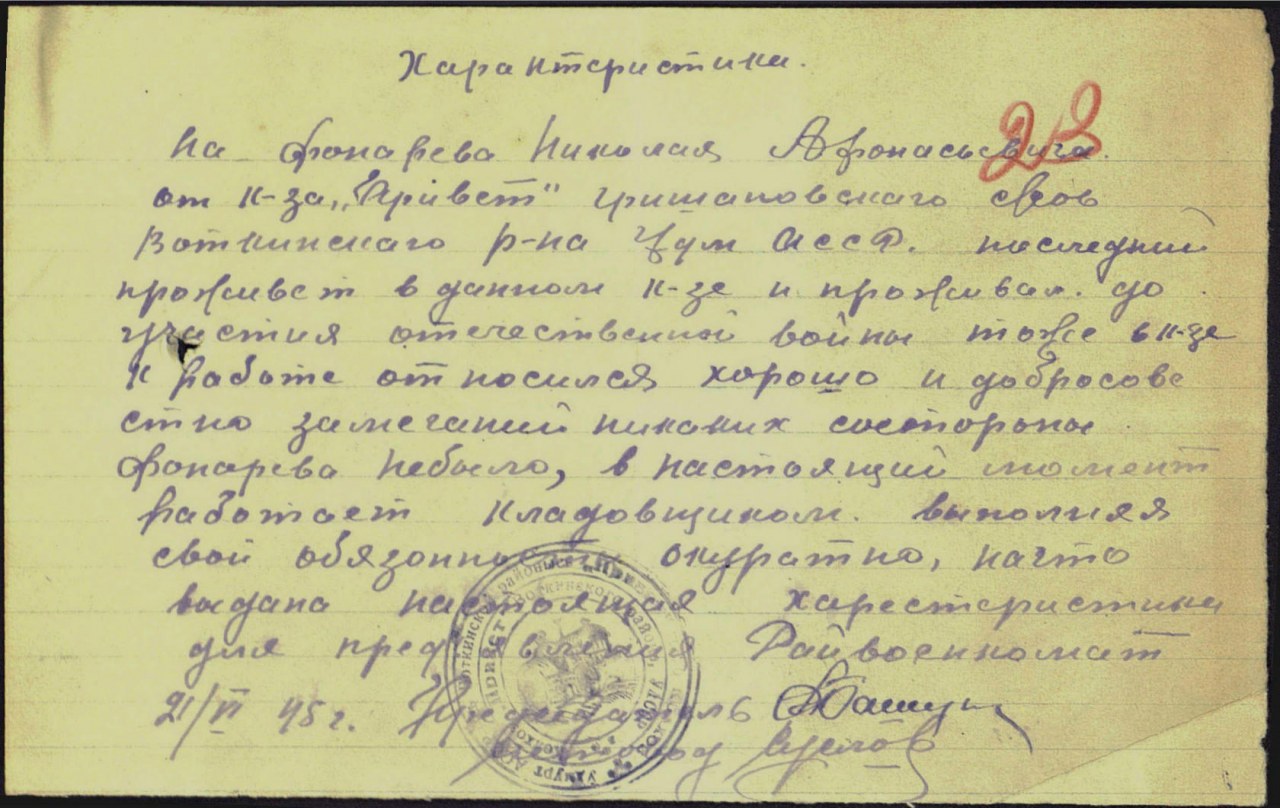 Характеристика.
23
На Фонарева Николая Афонасьевича.
от к-за "Привет" Гришановского с/сов
Воткинского р-на Удм АССР. последний
проживает в данном к-зе и проживал. до
участия отечественной войны тоже в к-зе
к работе относился хорошо и добросове
стно замечаний никаких состороны
Фонарева небыло, в настоящий момент
работает кладовщиком. выполняя
свой обязонности окуратно, начто
выдана настоящая харестеристика
для представления Райвоенкомат
21/VI 45 г. Председатель